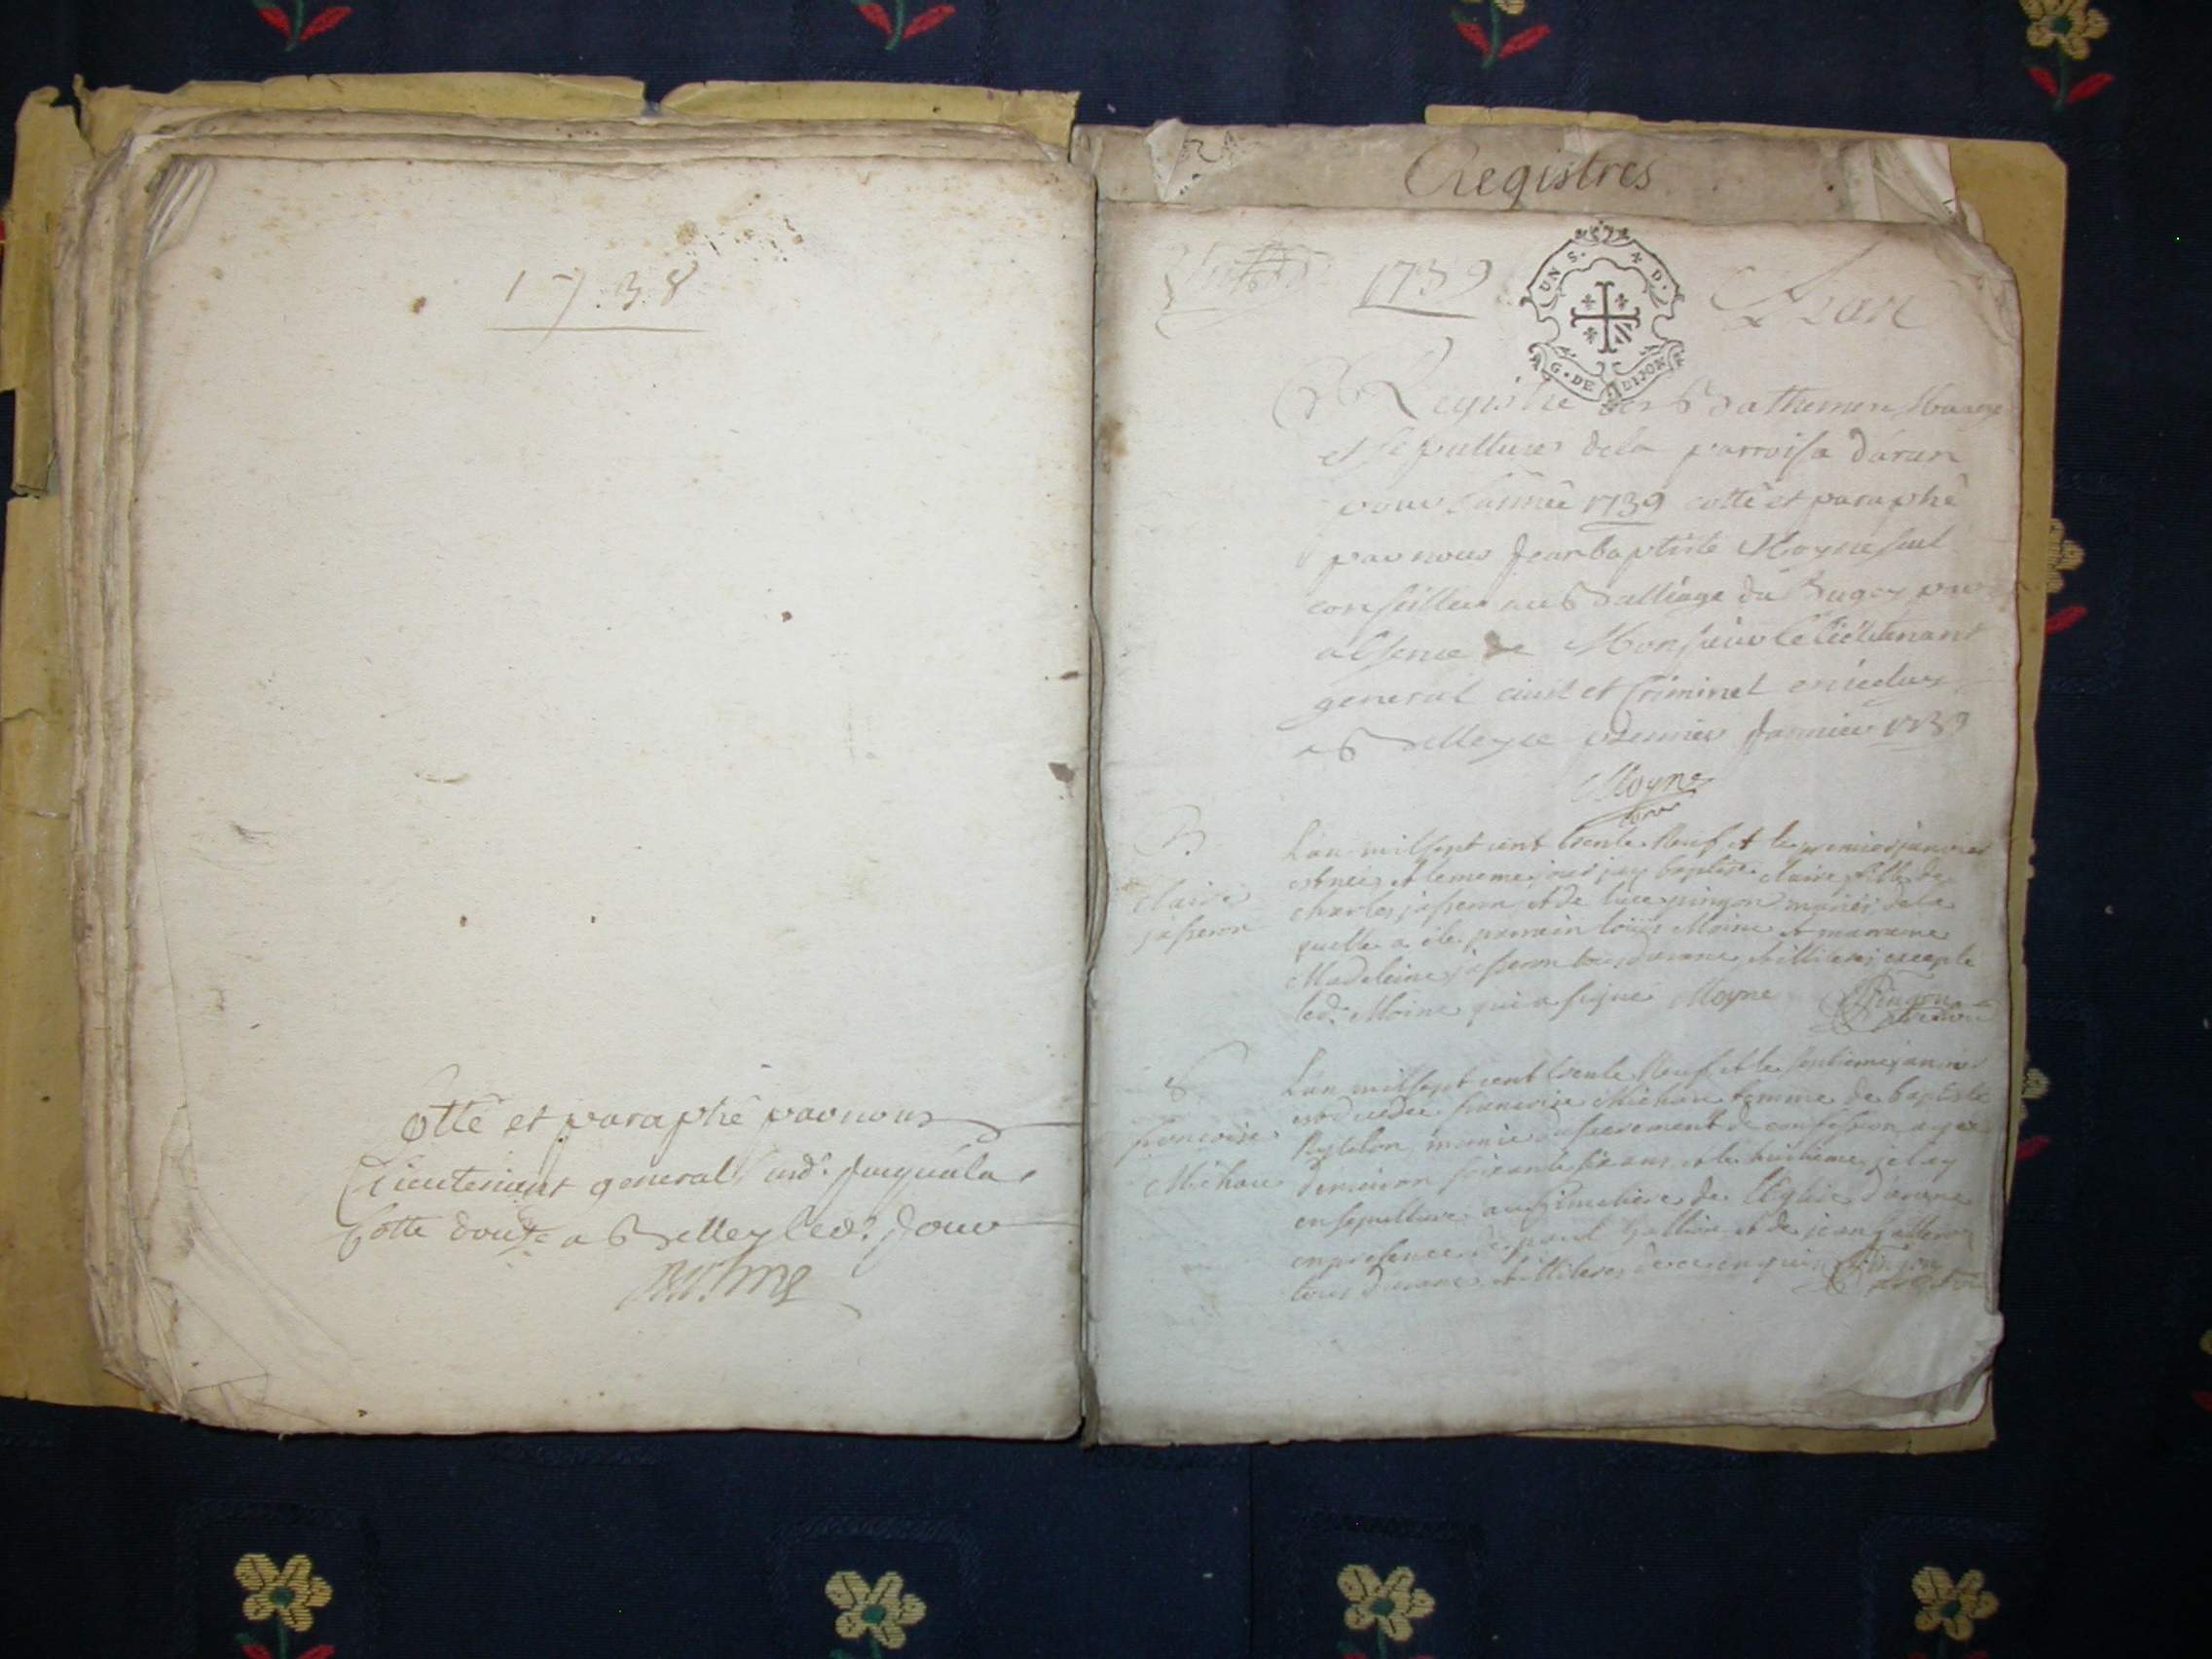 1738
Cotté et paraphé par nous
Lieutenant general susd. Jusqu'a la
Cotte douze a Belley led. Jour
Registres
1739
Aran
UN S. N D.
G. DE DIJON
Registre des Bathemes Mariage
et sepultures de la parroisse d'aran
pour l'année 1739 cotté et paraphé
par nous Jean baptiste Moyne seul
conseiller au Balliage du Bugey par
absence de Monsieur le lieutenant
general civil et Criminel
a Belley ce premier Janvier 1739
Moyne
B.
Claire
jasseron
L'an mil sept cent trente Neuf et le premier janvier
est née et le meme jour jay baptisé claire fille de
charles jasseron et de luce pingon mariés de la
quelle a été parrain louis Moine et marraine
Madeleine jasseron tous d'arane illiteres excepte
led. Moine qui a signé Moyne Pingon
S
francoise
Michau
L'an mil sept cent trente Neuf et le septieme janvier
est decedée francoise Michau femme de baptiste
munie du sacrement de confession agée
d'environ soixante six ans et le huitieme je l'ay
ensepulturé au simetiere de l'Eglise d'arane
en presence de paul et de jean
tous d'arane illiteres de ce enquis Pingon